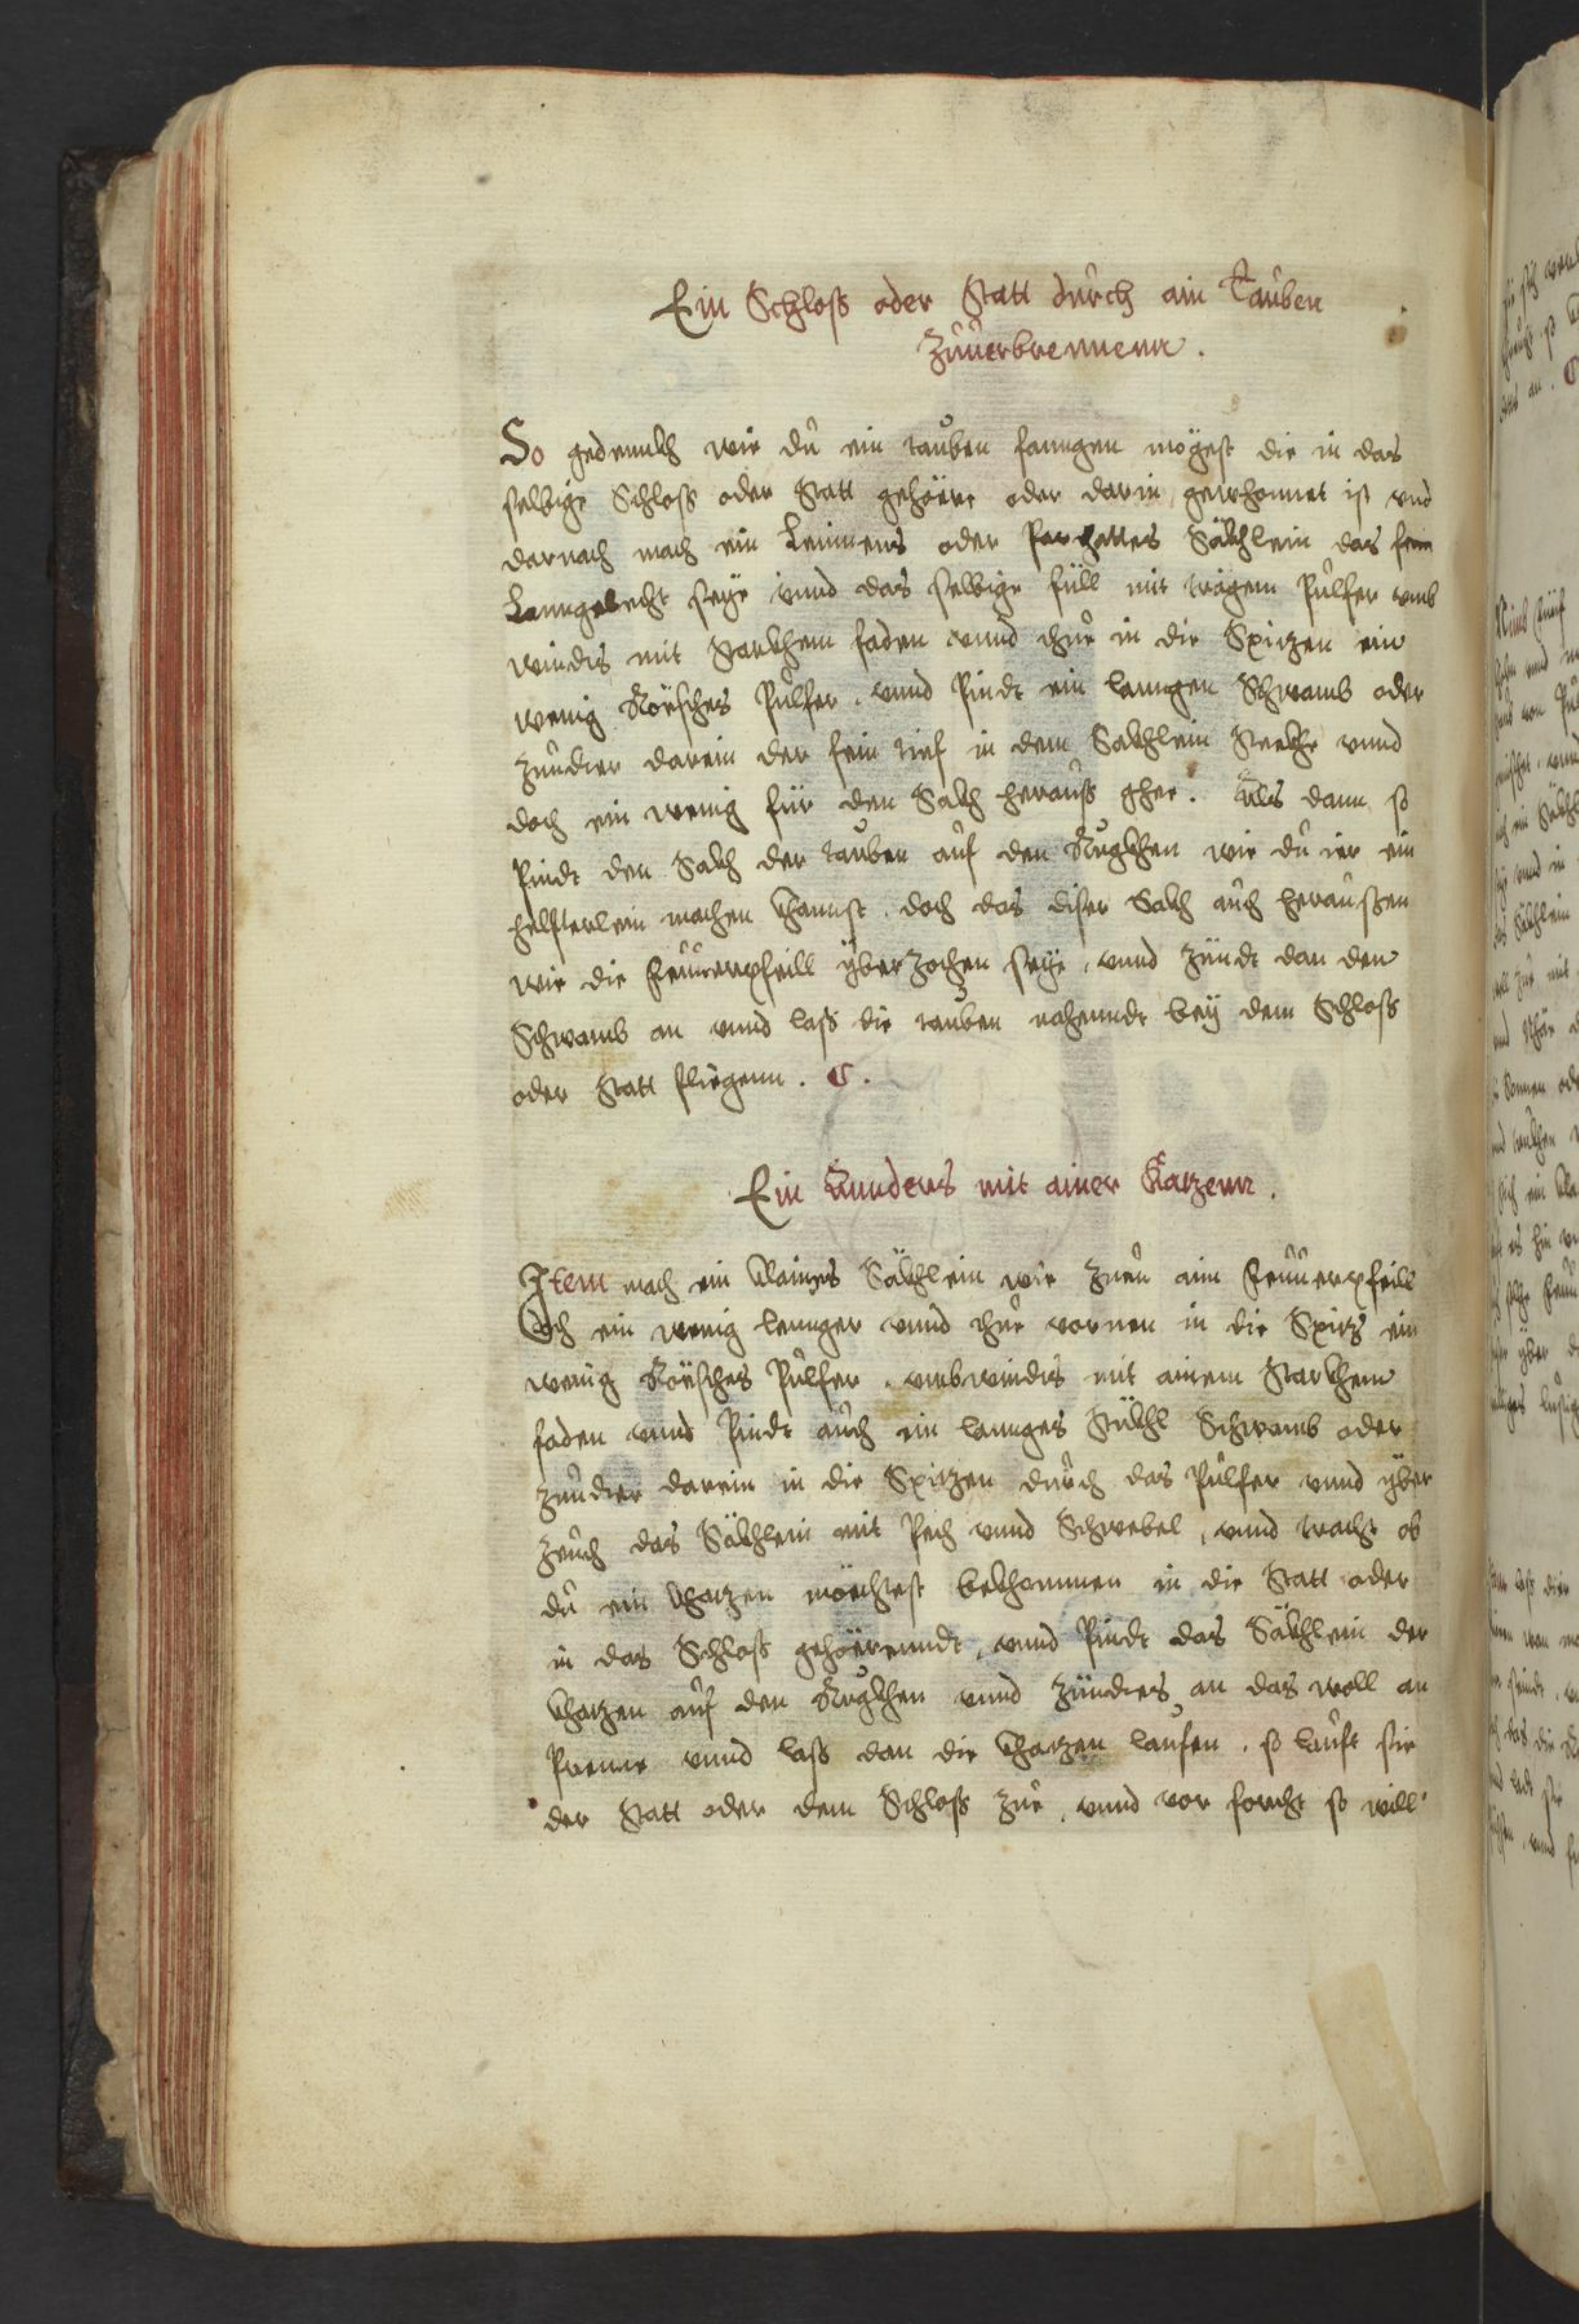 Ein Schloß oder Statt durch ain Tauben
Zuuerbrennenn.
So gedennkh wie du ein tauben fanngen mögest die in das
selbige Schloß oder Statt gehöere oder darin gewhonnet ist vnd
darnach mach ein Leinnens oder Parchattes Säkhlein das fein
Lanngelecht seye vnnd das selbige füll mit trägem Pulfer vmb
windts mit starkhem faden vnnd thue in die Spitzen ein
wenig Röesches Pulfer . vnnd Pindt ein lanngen Schwamb oder
zunder darein der fein tief in dem Sakhlein stekhe vnnd
doch ein wenig für den Sakh herauß ghee . Als dann so
Pindt den Sakh der tauben auf den Rugkhen wie du ier ein
helfterlein machen khannst . doch das diser Sakh auch heraussen
wie die Feuuerpfeill yberzochen seye , vnnd zündt dan den
Schwamb an vnnd laß die tauben nahenndt bey dem Schloß
oder Statt fliegenn . C .
Ein Annders mit ainer Katzenn .
Item mach ein klaines Säkhlein wie zuen aim Feuuerpfeill
doch ein wenig lennger vnnd thue vornen in die Spitz ein
wenig Röesches Pulfer . vmbwindts mit ainem starkhem
faden vnnd Pindt auch ein lannges stükhl Schwamb oder
zunder darein in die Spitzen durch das Pulfer vnnd yber
zeuch das Säkhlein mit Pech vnnd Schwebel , vnnd tracht ob
du ein khatzen möechtest bekhommen in die Statt oder
in das Schloß gehöerenndt , vnnd Pindt das Säkhlein der
khatzen auf den Rugkhen vnnd zündts an das woll an
Prenne vnnd laß dan die khatzen laufen . so lauft sie
der Statt oder dem Schloß zue , vnnd vor forcht so will